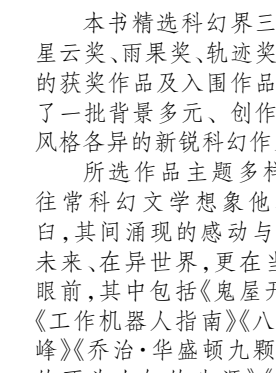 本书精选科幻界三
星云奖、雨果奖、轨迹奖
的获奖作品及入围作品
了一批背景多元、创作
风格各异的新锐科幻作
所选作品主题多样
往常科幻文学想象他
臼,其间涌现的感动与
未来、在异世界,更在当
眼前,其中包括《鬼屋开
《工作机器人指南》《八
峰》《乔治·华盛顿九颗